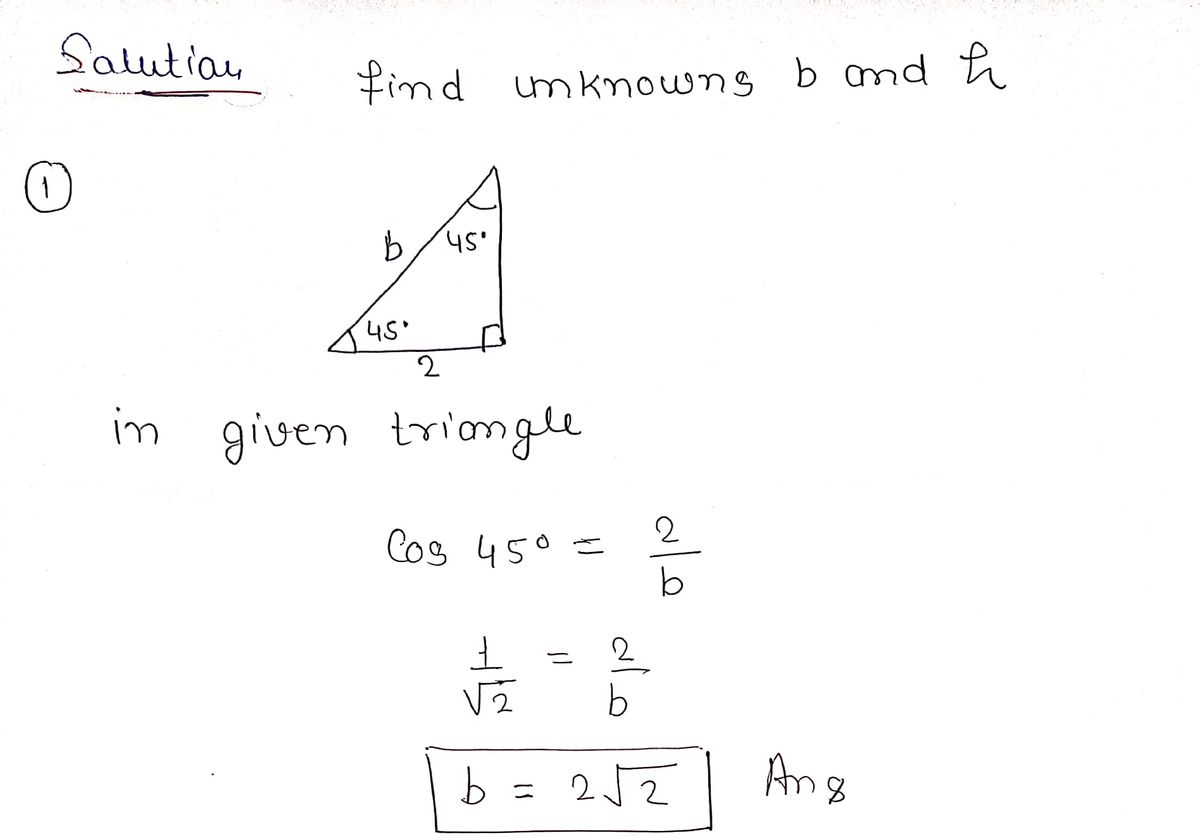 Solution
find unknowns b and h
1
b
45°
45°
2
in given triangle
Cos 45° = 2/b
1/√2 = 2/b
b = 2√2 Ans